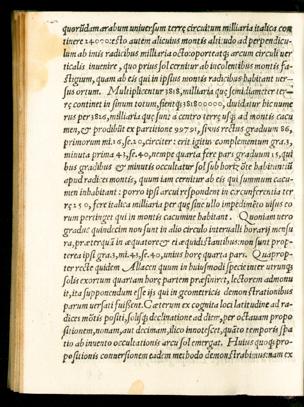 quorūdam arabum universum terrę circuitum milliaria italica con
tinere 24000: esto autem alicuius montis altitudo ad perpendicu
lum ab imis radicibus milliaria octo: oporteat arcum circuli ver
ticalis invenire, quo prius sol cernitur ab incolentibus montis fa-
stigium, quam ab eis qui in ipsius montis radicibus habitant ver-
sus ortum. Multiplicentur 3818, milliaria semidiameter ter-
rę continet in sinum totum, fient 381800000, dividatur hic nume
rus per 3826, milliaria quę sunt à centro terrę usq ad montis cacu
men, & prodibūt ex partitione 99791, sinus rectus graduum 86,
primorum mi. 16, se. 20, circiter: erit igitur complementum gra. 3,
minuta prima 43, se. 40, nempe quarta fere pars graduum 15, qui
bus gradibus & minutis occultatur sol sub
apud radices montis, quum iam cernitur ab eis qui summum cacu-
men inhabitant: porro ipsi arcui respondent in circunferentia ter
rę 250, fere italica milliaria per quę sine ullo impedimēto visus eo
rum pertinget qui in montis cacumine habitant. Quoniam vero
gradus quindecim non sunt in alio circulo intervalli horarij mensu
ra, præterquā in æquatore & ei æquidistantibus: non sunt prop-
terea ipsi gra. 3, mi. 43, se. 40, unius horę quarta pars. Quaprop-
ter recte quidem Allacen quum in huiusmodi specie inter utrunq
solis exortum quartam horę partem præfiniret, lectorem admonu
it, ita supponendum esse ijs qui in geometricis demonstrationibus
parum versati fuissent. Cæterum ex cognita loci latitudine ad ra-
dices mōtis positi, solisq declinatione ad diem, per octavam propo
sitionem, nonam, aut decimam, illico innotescet, quāto temporis spa
tio ab invento occultationis arcu sol emergat. Huius quoq pro-
positionis conversionem eadem methodo demonstrabimus: nam ex